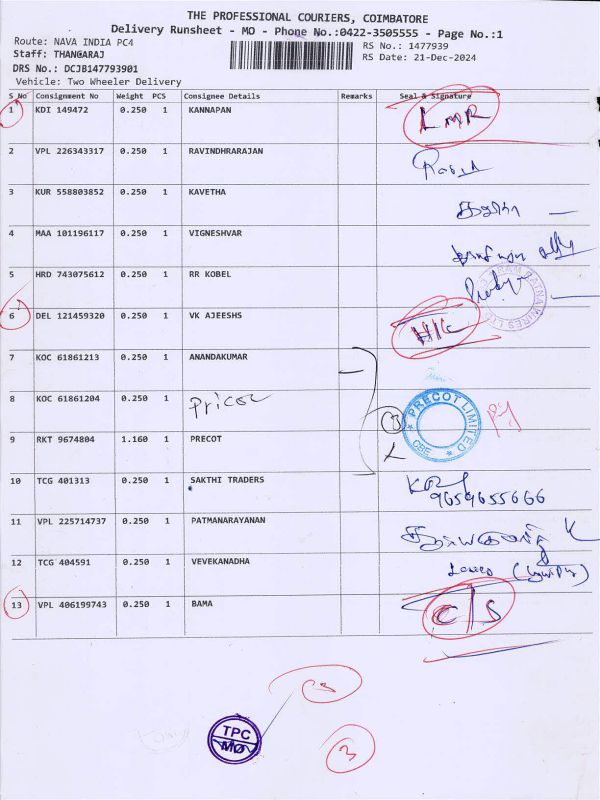 THE PROFESSIONAL COURIERS, COIMBATORE
Delivery Runsheet - MO - Phone No.:0422-3505555 - Page No.:1
Route: NAVA INDIA PC4
RS No.: 1477939
Staff: THANGARAJ
RS Date: 21-Dec-2024
DRS No.: DCJB147793901
Vehicle: Two Wheeler Delivery
S No Consignment No Weight PCS Consignee Details Remarks Seal & Signature
1 KDI 149472 0.250 1 KANNAPAN
2 VPL 226343317 0.250 1 RAVINDHRARAJAN
3 KUR 558803852 0.250 1 KAVETHA
4 MAA 101196117 0.250 1 VIGNESHVAR
5 HRD 743075612 0.250 1 RR KOBEL
6 DEL 121459320 0.250 1 VK AJEESHS
7 KOC 61861213 0.250 1 ANANDAKUMAR
8 KOC 61861204 0.250 1 Pricol
PRECOT LIMITED
CBE
9 RKT 9674804 1.160 1 PRECOT
10 TCG 401313 0.250 1 SAKTHI TRADERS
9659655666
11 VPL 225714737 0.250 1 PATMANARAYANAN
12 TCG 404591 0.250 1 VEVEKANADHA
13 VPL 406199743 0.250 1 BAMA C/S
TPC
MO
3